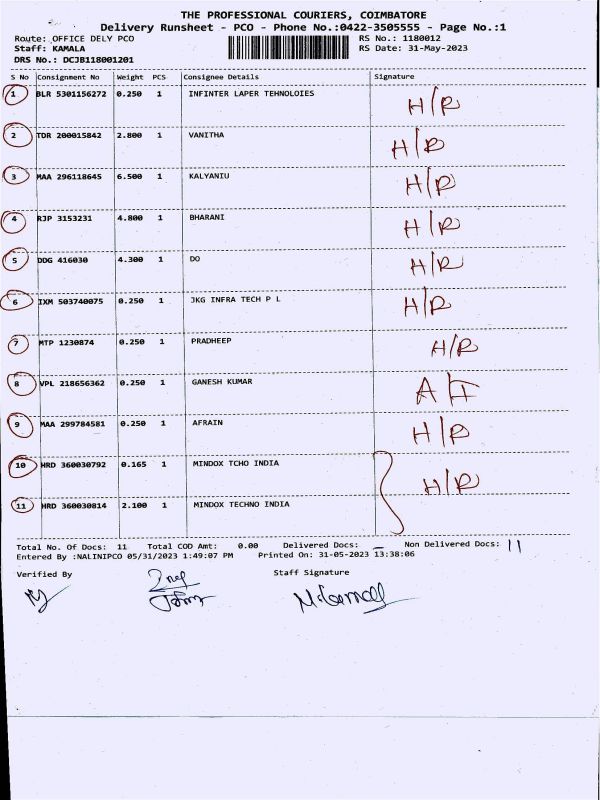 THE PROFESSIONAL COURIERS, COIMBATORE
Delivery Runsheet - PCO - Phone No.:0422-3505555 - Page No.:1
Route: OFFICE DELY PCO RS No.: 1180012
Staff: KAMALA RS Date: 31-May-2023
DRS No.: DCJB118001201
S No Consignment No Weight PCS Consignee Details Signature
1 BLR 5301156272 0.250 1 INFINTER LAPER TEHNOLOIES H/R
2 TDR 200015842 2.800 1 VANITHA H/R
3 MAA 296118645 6.500 1 KALYANIU H/R
4 RJP 3153231 4.800 1 BHARANI H/R
5 DDG 416030 4.300 1 DO H/R
6 IXM 503740075 0.250 1 JKG INFRA TECH P L H/R
7 MTP 1230874 0.250 1 PRADHEEP H/R
8 VPL 218656362 0.250 1 GANESH KUMAR
9 MAA 299784581 0.250 1 AFRAIN H/R
10 HRD 360030792 0.165 1 MINDOX TCHO INDIA H/R
11 HRD 360030814 2.100 1 MINDOX TECHNO INDIA
Total No. Of Docs: 11 Total COD Amt: 0.00 Delivered Docs: - Non Delivered Docs: 11
Entered By :NALINIPCO 05/31/2023 1:49:07 PM Printed On: 31-05-2023 13:38:06
Verified By Staff Signature